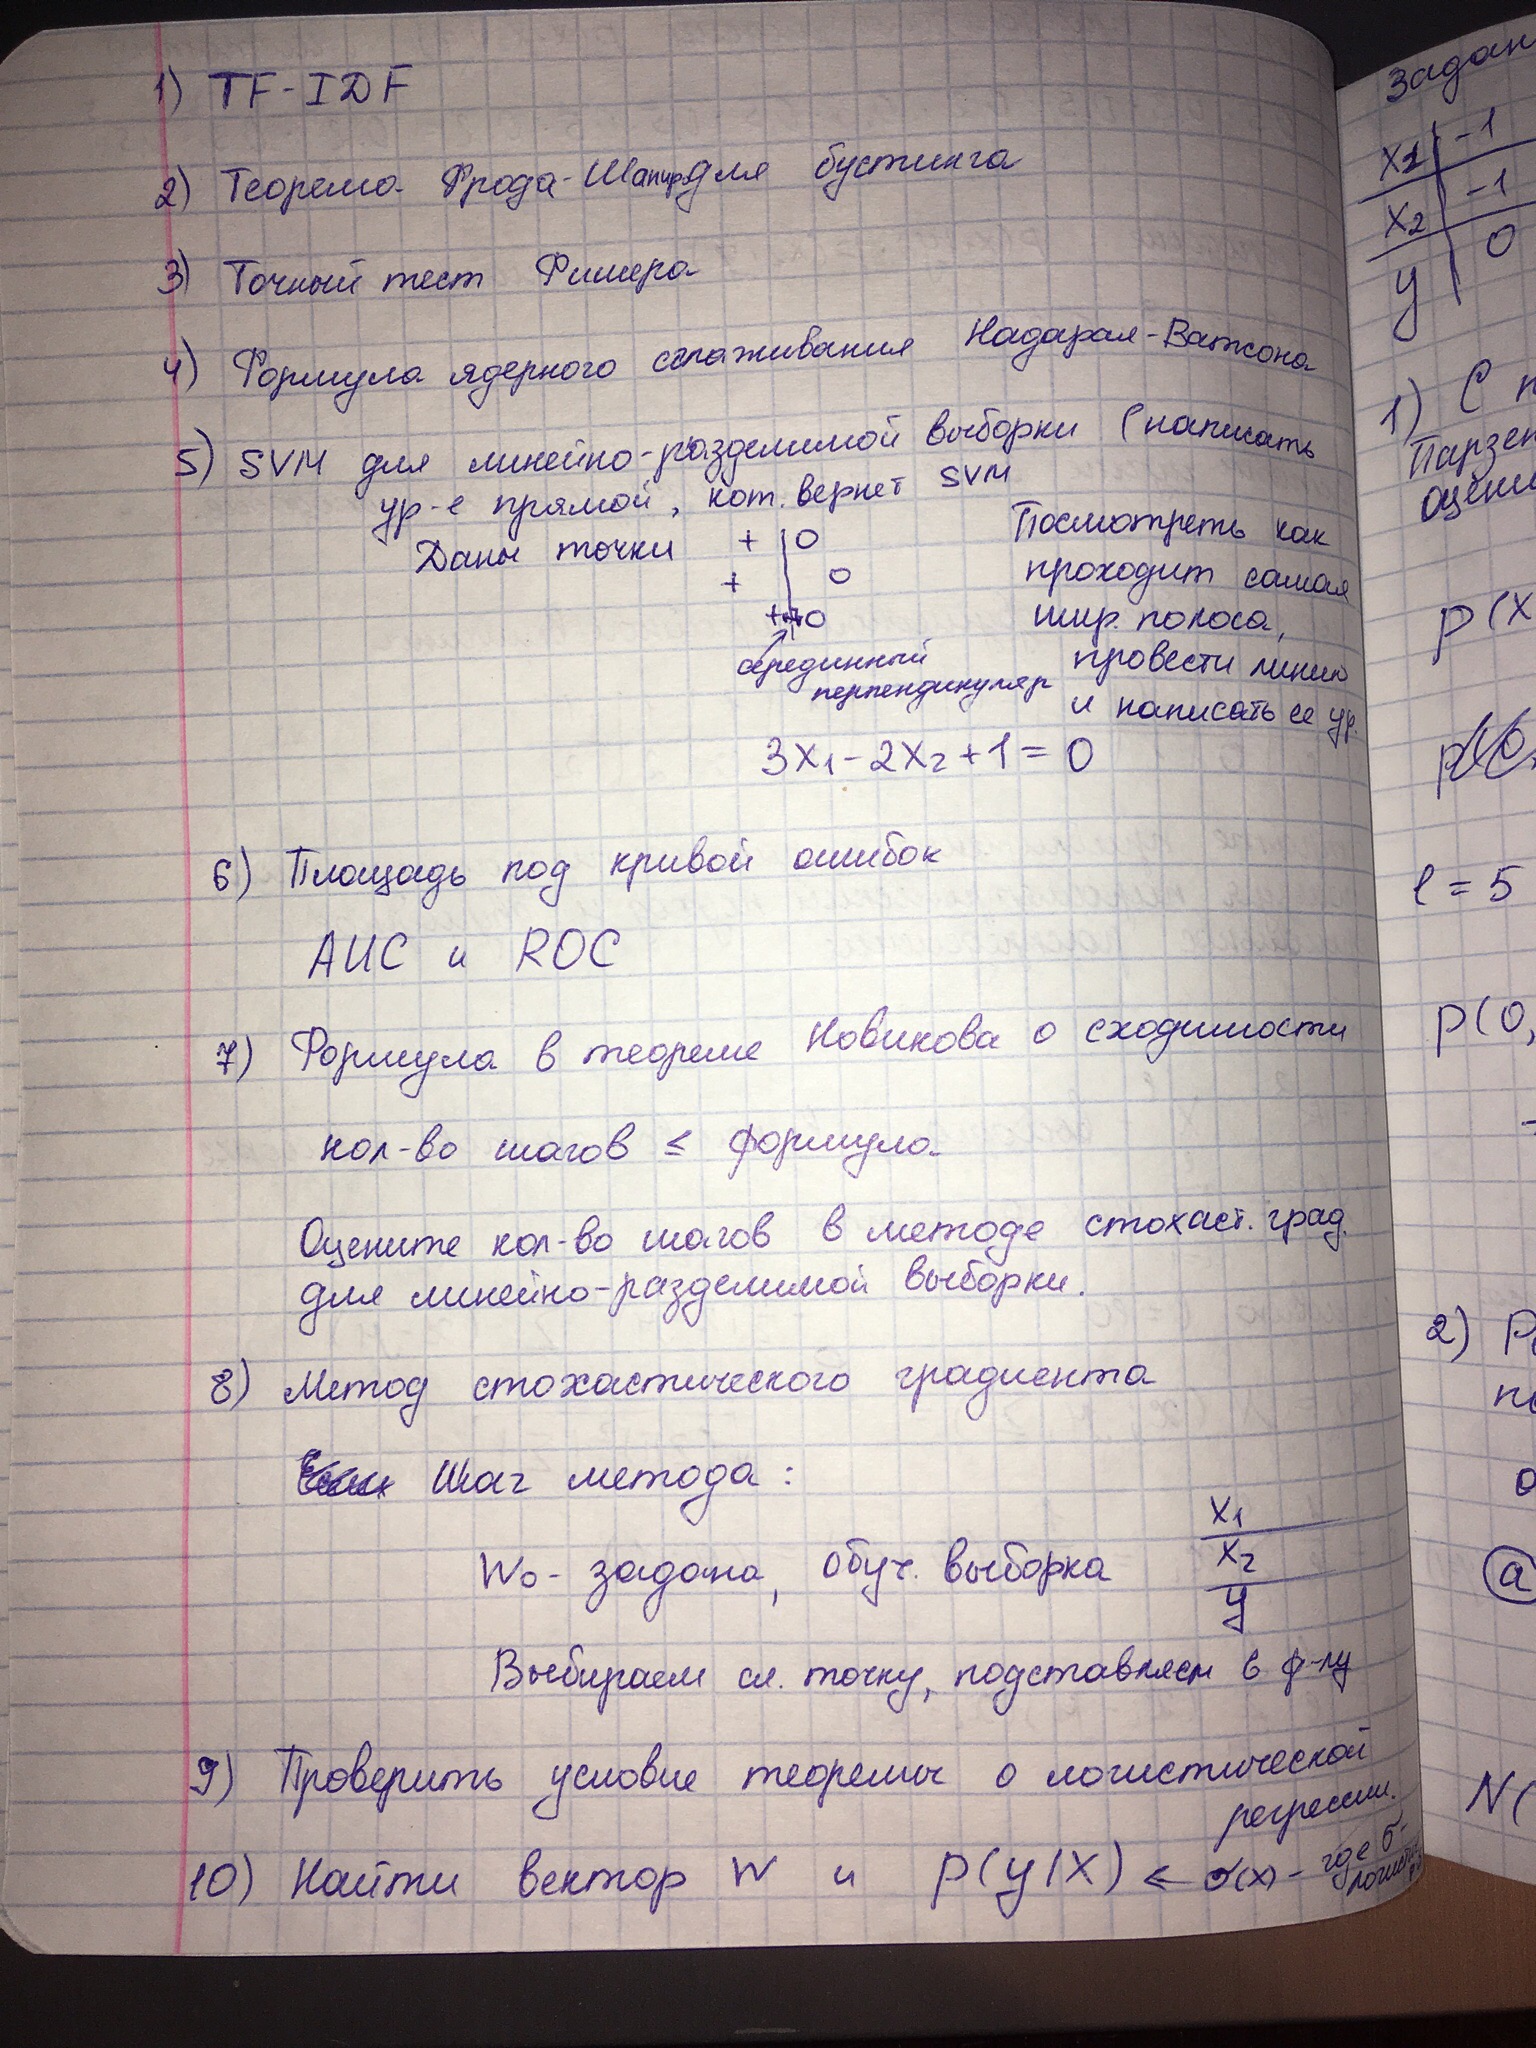 1) TF-IDF
2) Теорема Фрода-Шапир для бустинга
3) Точный тест Фишера
4) Формула ядерного сглаживания Надарая-Ватсона
5) SVM для линейно-разделимой выборки (написать
ур-е прямой, кот. вернет SVM
Даны точки
+ | О
+ О
++О
серединный
перпендикуляр
Посмотреть как
проходит самая
шир. полоса,
провести линию
и написать ее ур.
3x₁ - 2x₂ + 1 = 0
6) Площадь под кривой ошибок
AUC и ROC
7) Формула в теореме Новикова о сходимости
кол-во шагов ≤ формула
Оцените кол-во шагов в методе стохаст. град.
для линейно-разделимой выборки.
8) Метод стохастического градиента
Шаг метода:
W₀ - задана, обуч. выборка
x₁
x₂
y
Выбираем сл. точку, подставляем в ф-лу
9) Проверить условие теоремы о логистической
регрессии.
10) Найти вектор W и p(y|x) ← σ(x) - где σ-
Задан
x₁ | -1
x₂ | -1
y | 0
1) С п
Парзен
оценк
p(x
l = 5
p(0,
2)
а
N(